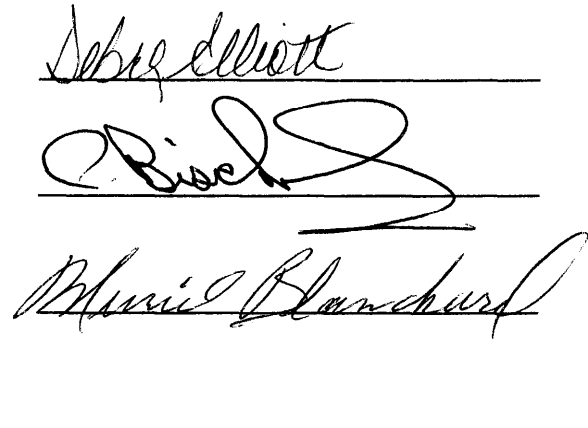 Debra Elliott
C. Bisch
Muriel Blanchard